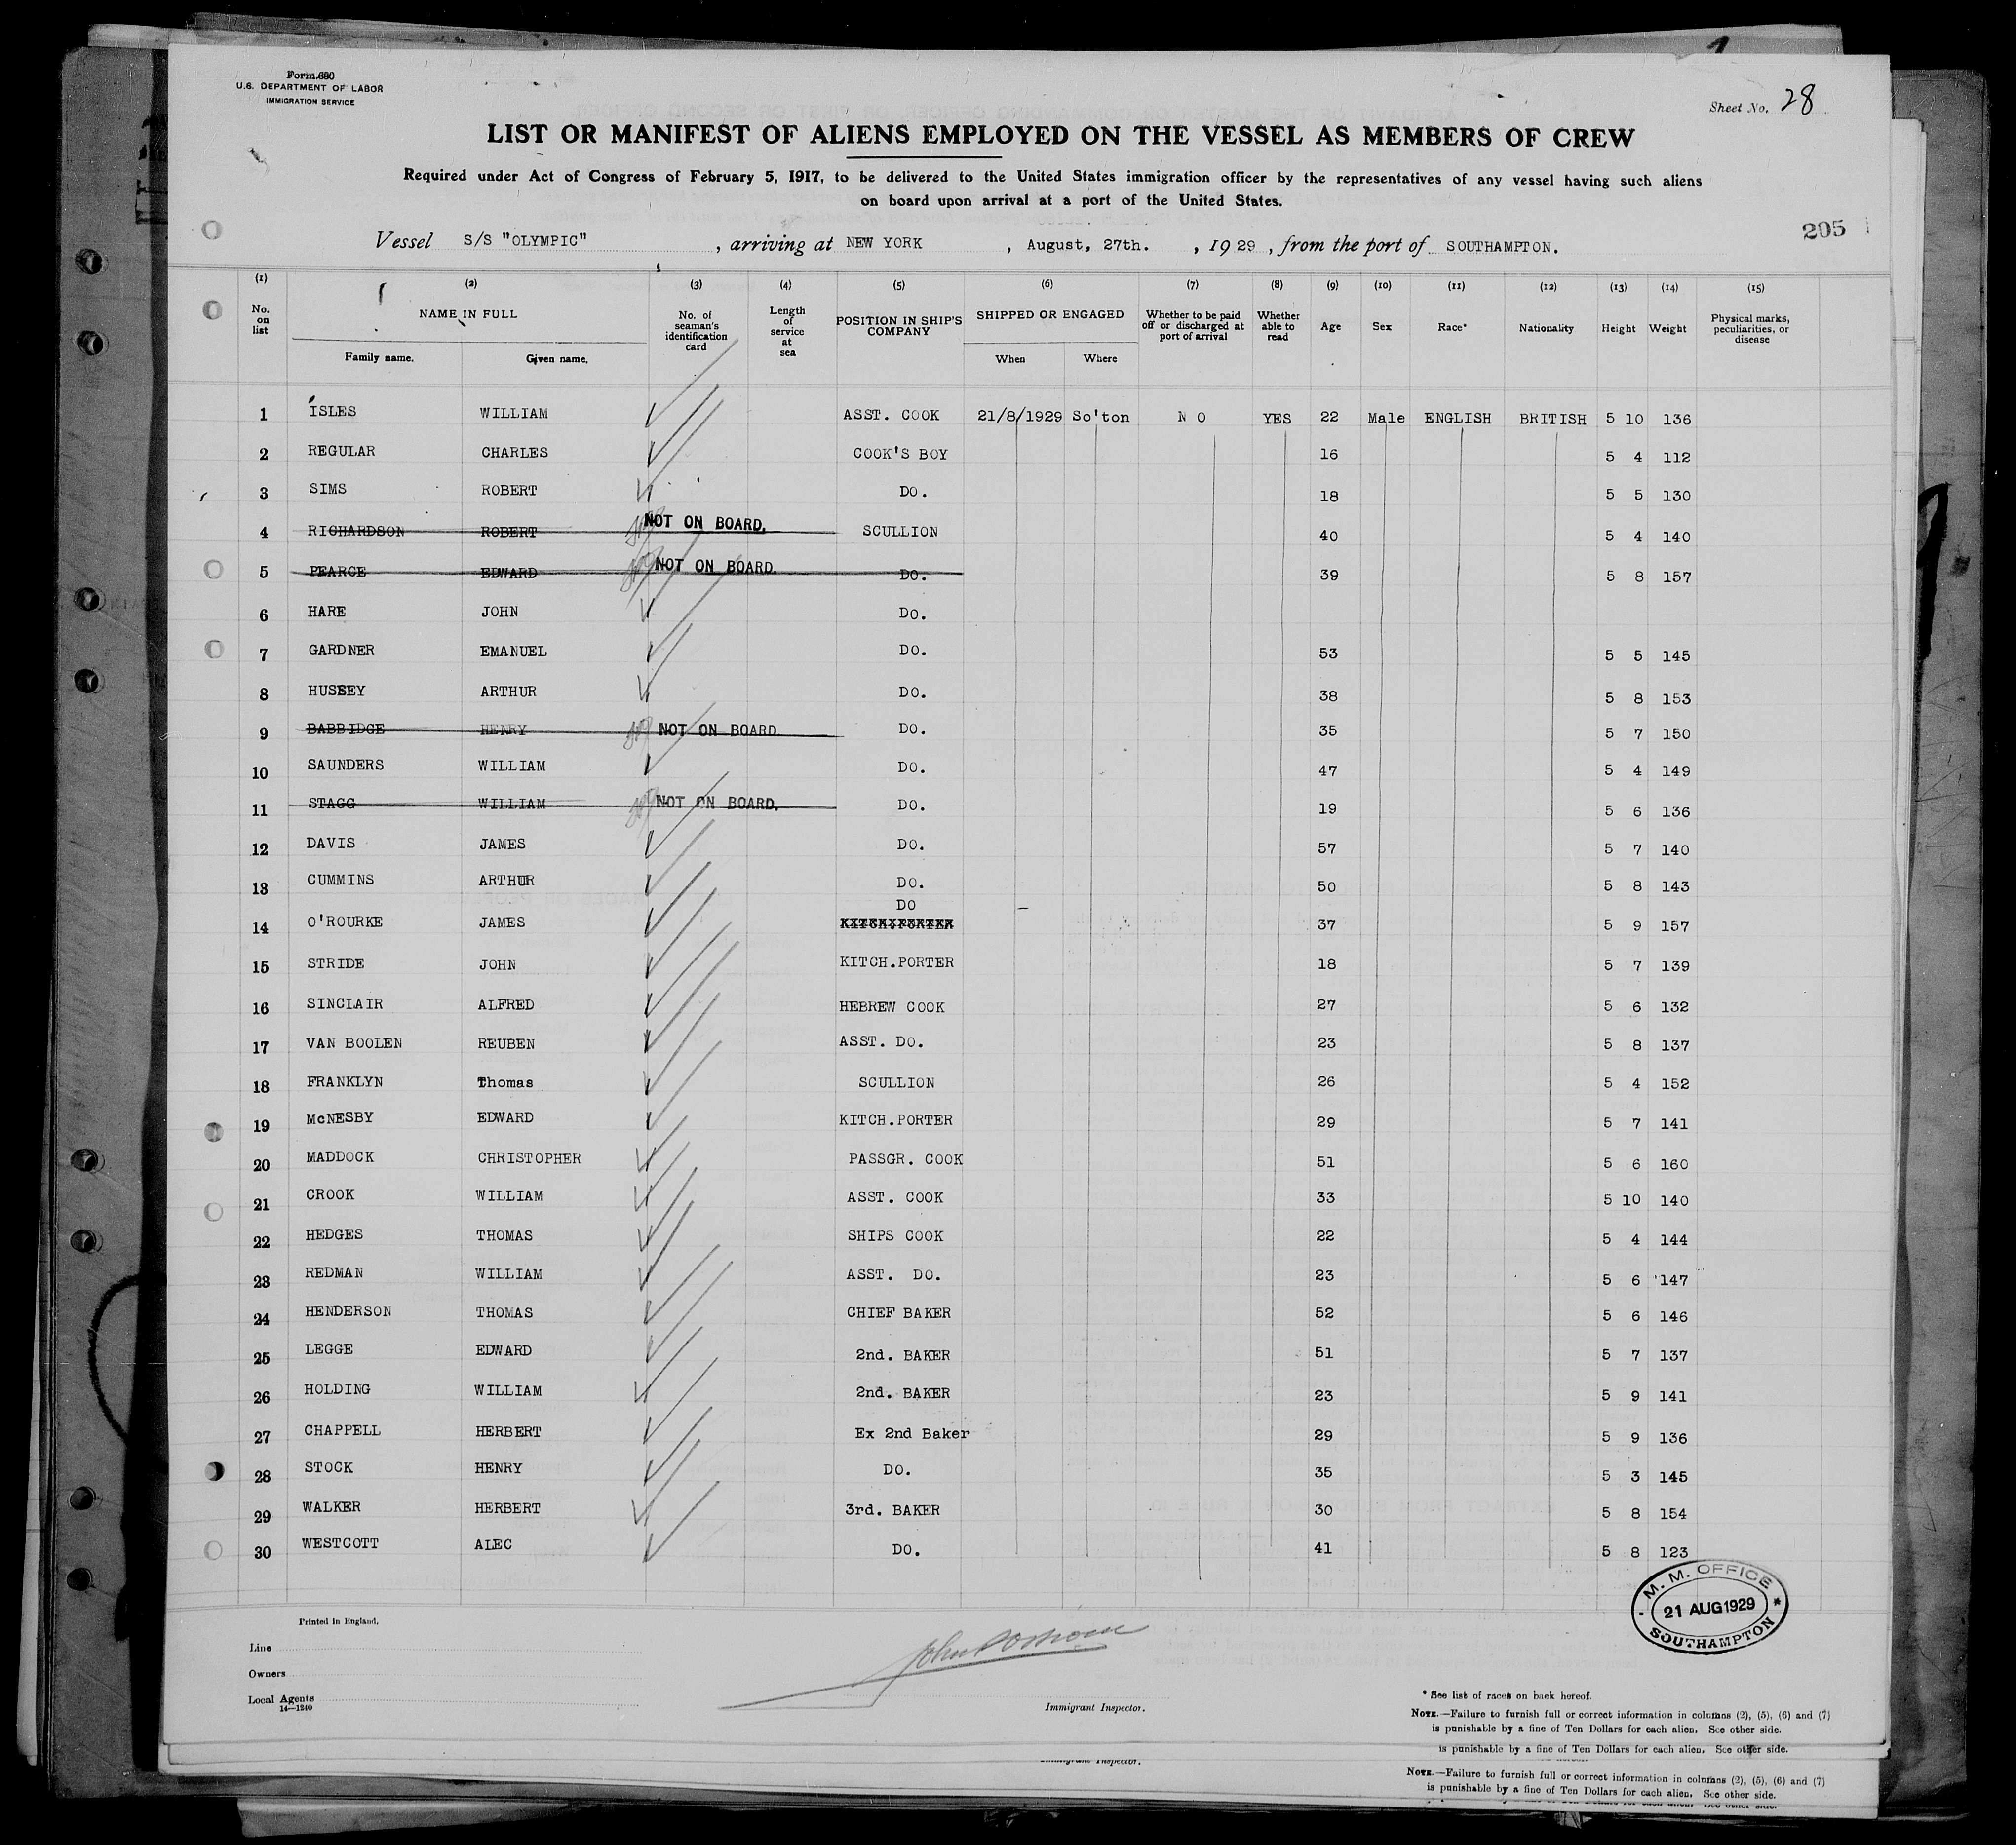 Form 680
U.S. DEPARTMENT OF LABOR
IMMIGRATION SERVICE
Sheet No. 28
LIST OR MANIFEST OF ALIENS EMPLOYED ON THE VESSEL AS MEMBERS OF CREW
Required under Act of Congress of February 5, 1917, to be delivered to the United States immigration officer by the representatives of any vessel having such aliens
on board upon arrival at a port of the United States.
205
Vessel S/S "OLYMPIC" , arriving at NEW YORK , August, 27th. , 1929 , from the port of SOUTHAMPTON.
(1) (2) (3) (4) (5) (6) (7) (8) (9) (10) (11) (12) (13) (14) (15)
No. on list NAME IN FULL No. of seaman's identification card Length of service at sea POSITION IN SHIP'S COMPANY SHIPPED OR ENGAGED Whether to be paid off or discharged at port of arrival Whether able to read Age Sex Race* Nationality Height Weight Physical marks, peculiarities, or disease
Family name. Given name. When Where
1 ISLES WILLIAM ASST. COOK 21/8/1929 So'ton N O YES 22 Male ENGLISH BRITISH 5 10 136
2 REGULAR CHARLES COOK'S BOY 16 5 4 112
3 SIMS ROBERT DO. 18 5 5 130
4 RICHARDSON ROBERT NOT ON BOARD. SCULLION 40 5 4 140
5 PEARCE EDWARD NOT ON BOARD. DO. 39 5 8 157
6 HARE JOHN DO.
7 GARDNER EMANUEL DO. 53 5 5 145
8 HUSSEY ARTHUR DO. 38 5 8 153
9 BABBIDGE HENRY NOT ON BOARD DO. 35 5 7 150
10 SAUNDERS WILLIAM DO. 47 5 4 149
11 STAGG WILLIAM NOT ON BOARD. DO. 19 5 6 136
12 DAVIS JAMES DO. 57 5 7 140
13 CUMMINS ARTHUR DO. 50 5 8 143
DO
14 O'ROURKE JAMES KITCH.PORTER 37 5 9 157
15 STRIDE JOHN KITCH.PORTER 18 5 7 139
16 SINCLAIR ALFRED HEBREW COOK 27 5 6 132
17 VAN BOOLEN REUBEN ASST. DO. 23 5 8 137
18 FRANKLYN Thomas SCULLION 26 5 4 152
19 McNESBY EDWARD KITCH.PORTER 29 5 7 141
20 MADDOCK CHRISTOPHER PASSGR. COOK 51 5 6 160
21 CROOK WILLIAM ASST. COOK 33 5 10 140
22 HEDGES THOMAS SHIPS COOK 22 5 4 144
23 REDMAN WILLIAM ASST. DO. 23 5 6 147
24 HENDERSON THOMAS CHIEF BAKER 52 5 6 146
25 LEGGE EDWARD 2nd. BAKER 51 5 7 137
26 HOLDING WILLIAM 2nd. BAKER 23 5 9 141
27 CHAPPELL HERBERT Ex 2nd Baker 29 5 9 136
28 STOCK HENRY DO. 35 5 3 145
29 WALKER HERBERT 3rd. BAKER 30 5 8 154
30 WESTCOTT ALEC DO. 41 5 8 123
M. M. OFFICE
21 AUG 1929
SOUTHAMPTON
Printed in England.
Line
Owners
Local Agents
14—1240
Immigrant Inspector.
* See list of races on back hereof.
NOTE.—Failure to furnish full or correct information in columns (2), (5), (6) and (7)
is punishable by a fine of Ten Dollars for each alien. See other side.
is punishable by a fine of Ten Dollars for each alien. See other side.
Immigrant Inspector.
NOTE.—Failure to furnish full or correct information in columns (2), (5), (6) and (7)
is punishable by a fine of Ten Dollars for each alien. See other side.